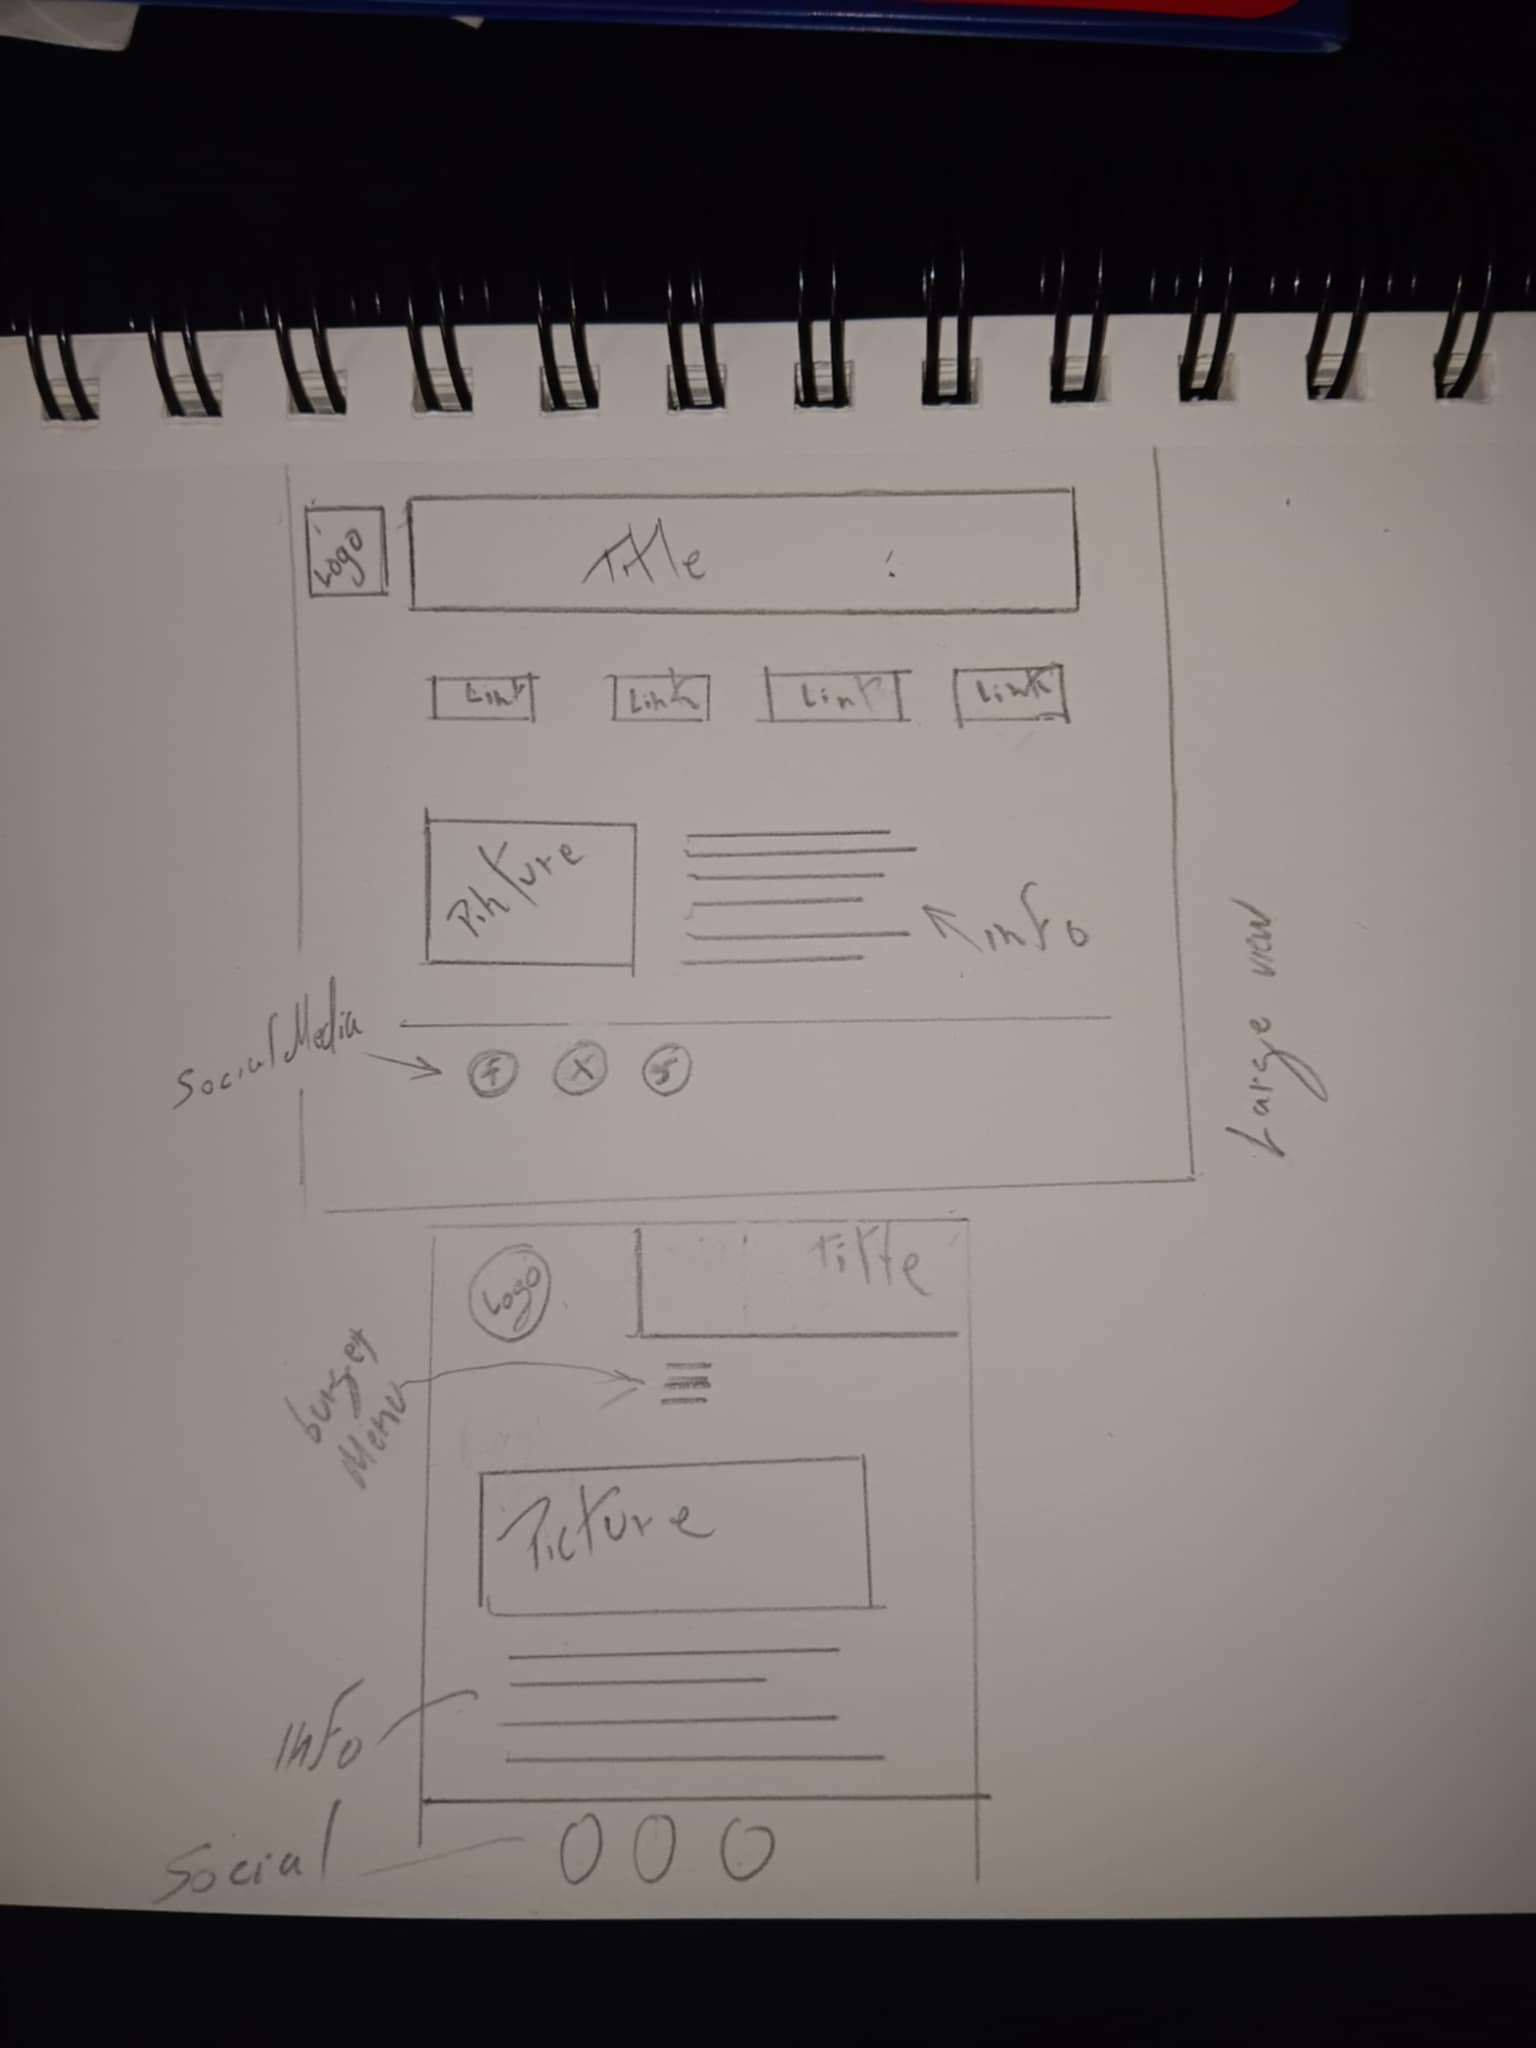 Logo
Title
Link Link Link Link
Pikture
info
Social Media
f X
Large view
Logo
Title
burger
Menu
Picture
Info
Social